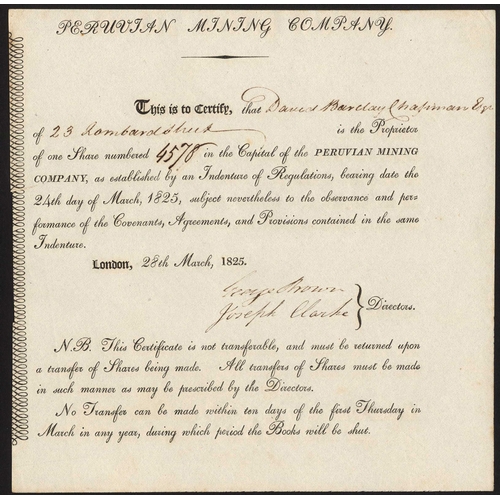 PERUVIAN MINING COMPANY.
This is to Certify, that David Barclay Chapman Esqr
of 23 Lombard street is the Proprietor
of one Share numbered 4578 in the Capital of the PERUVIAN MINING
COMPANY, as established by an Indenture of Regulations, bearing date the
24th day of March, 1825, subject nevertheless to the observance and per-
formance of the Covenants, Agreements, and Provisions contained in the same
Indenture.
London, 28th March, 1825.
George Brown
Joseph Clarke } Directors.
N.B. This Certificate is not transferable, and must be returned upon
a transfer of Shares being made. All transfers of Shares must be made
in such manner as may be prescribed by the Directors.
No Transfer can be made within ten days of the first Thursday
in March in any year, during which period the Books will be shut.